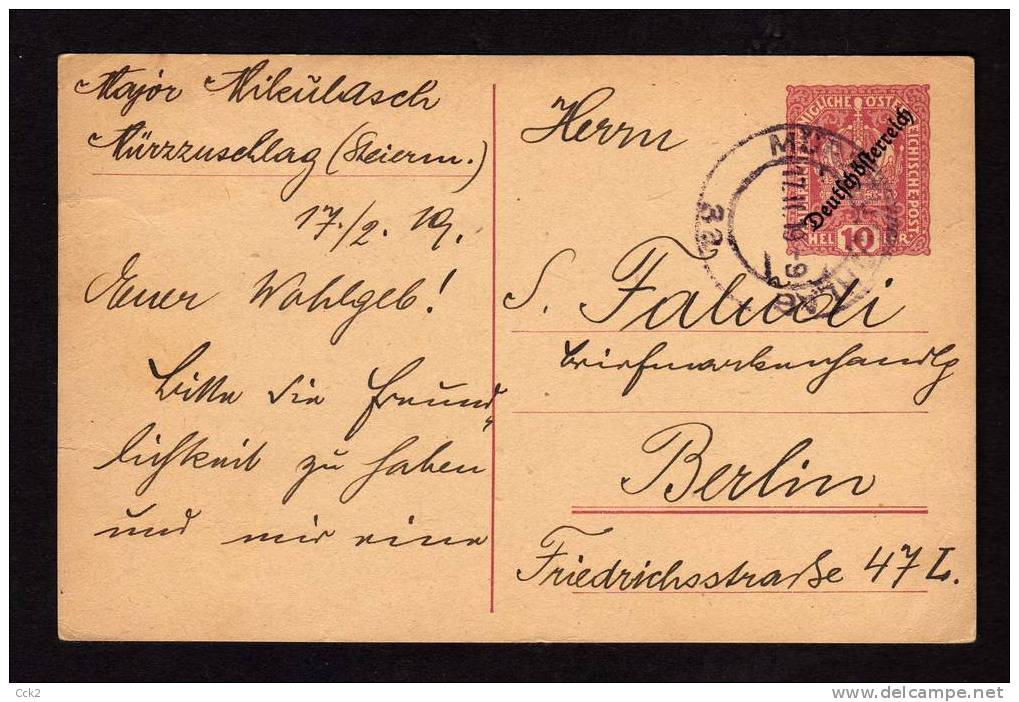 Major Mikulasch
Mürzzuschlag (Steierm.)
17./2. 19.
Euer Wohlgeb!
Bitte die freund„
lichkeit zu haben
und mir eine
Herrn
S. Faludi
Briefmarkenhandlg
Berlin
Friedrichsstraße 47 I.
NIGLICHE ÖSTERREICHISCHE POST.
Deutschösterreich
HEL 10 ER.
17.II.19-9
3a
Cck2
delcampe.net